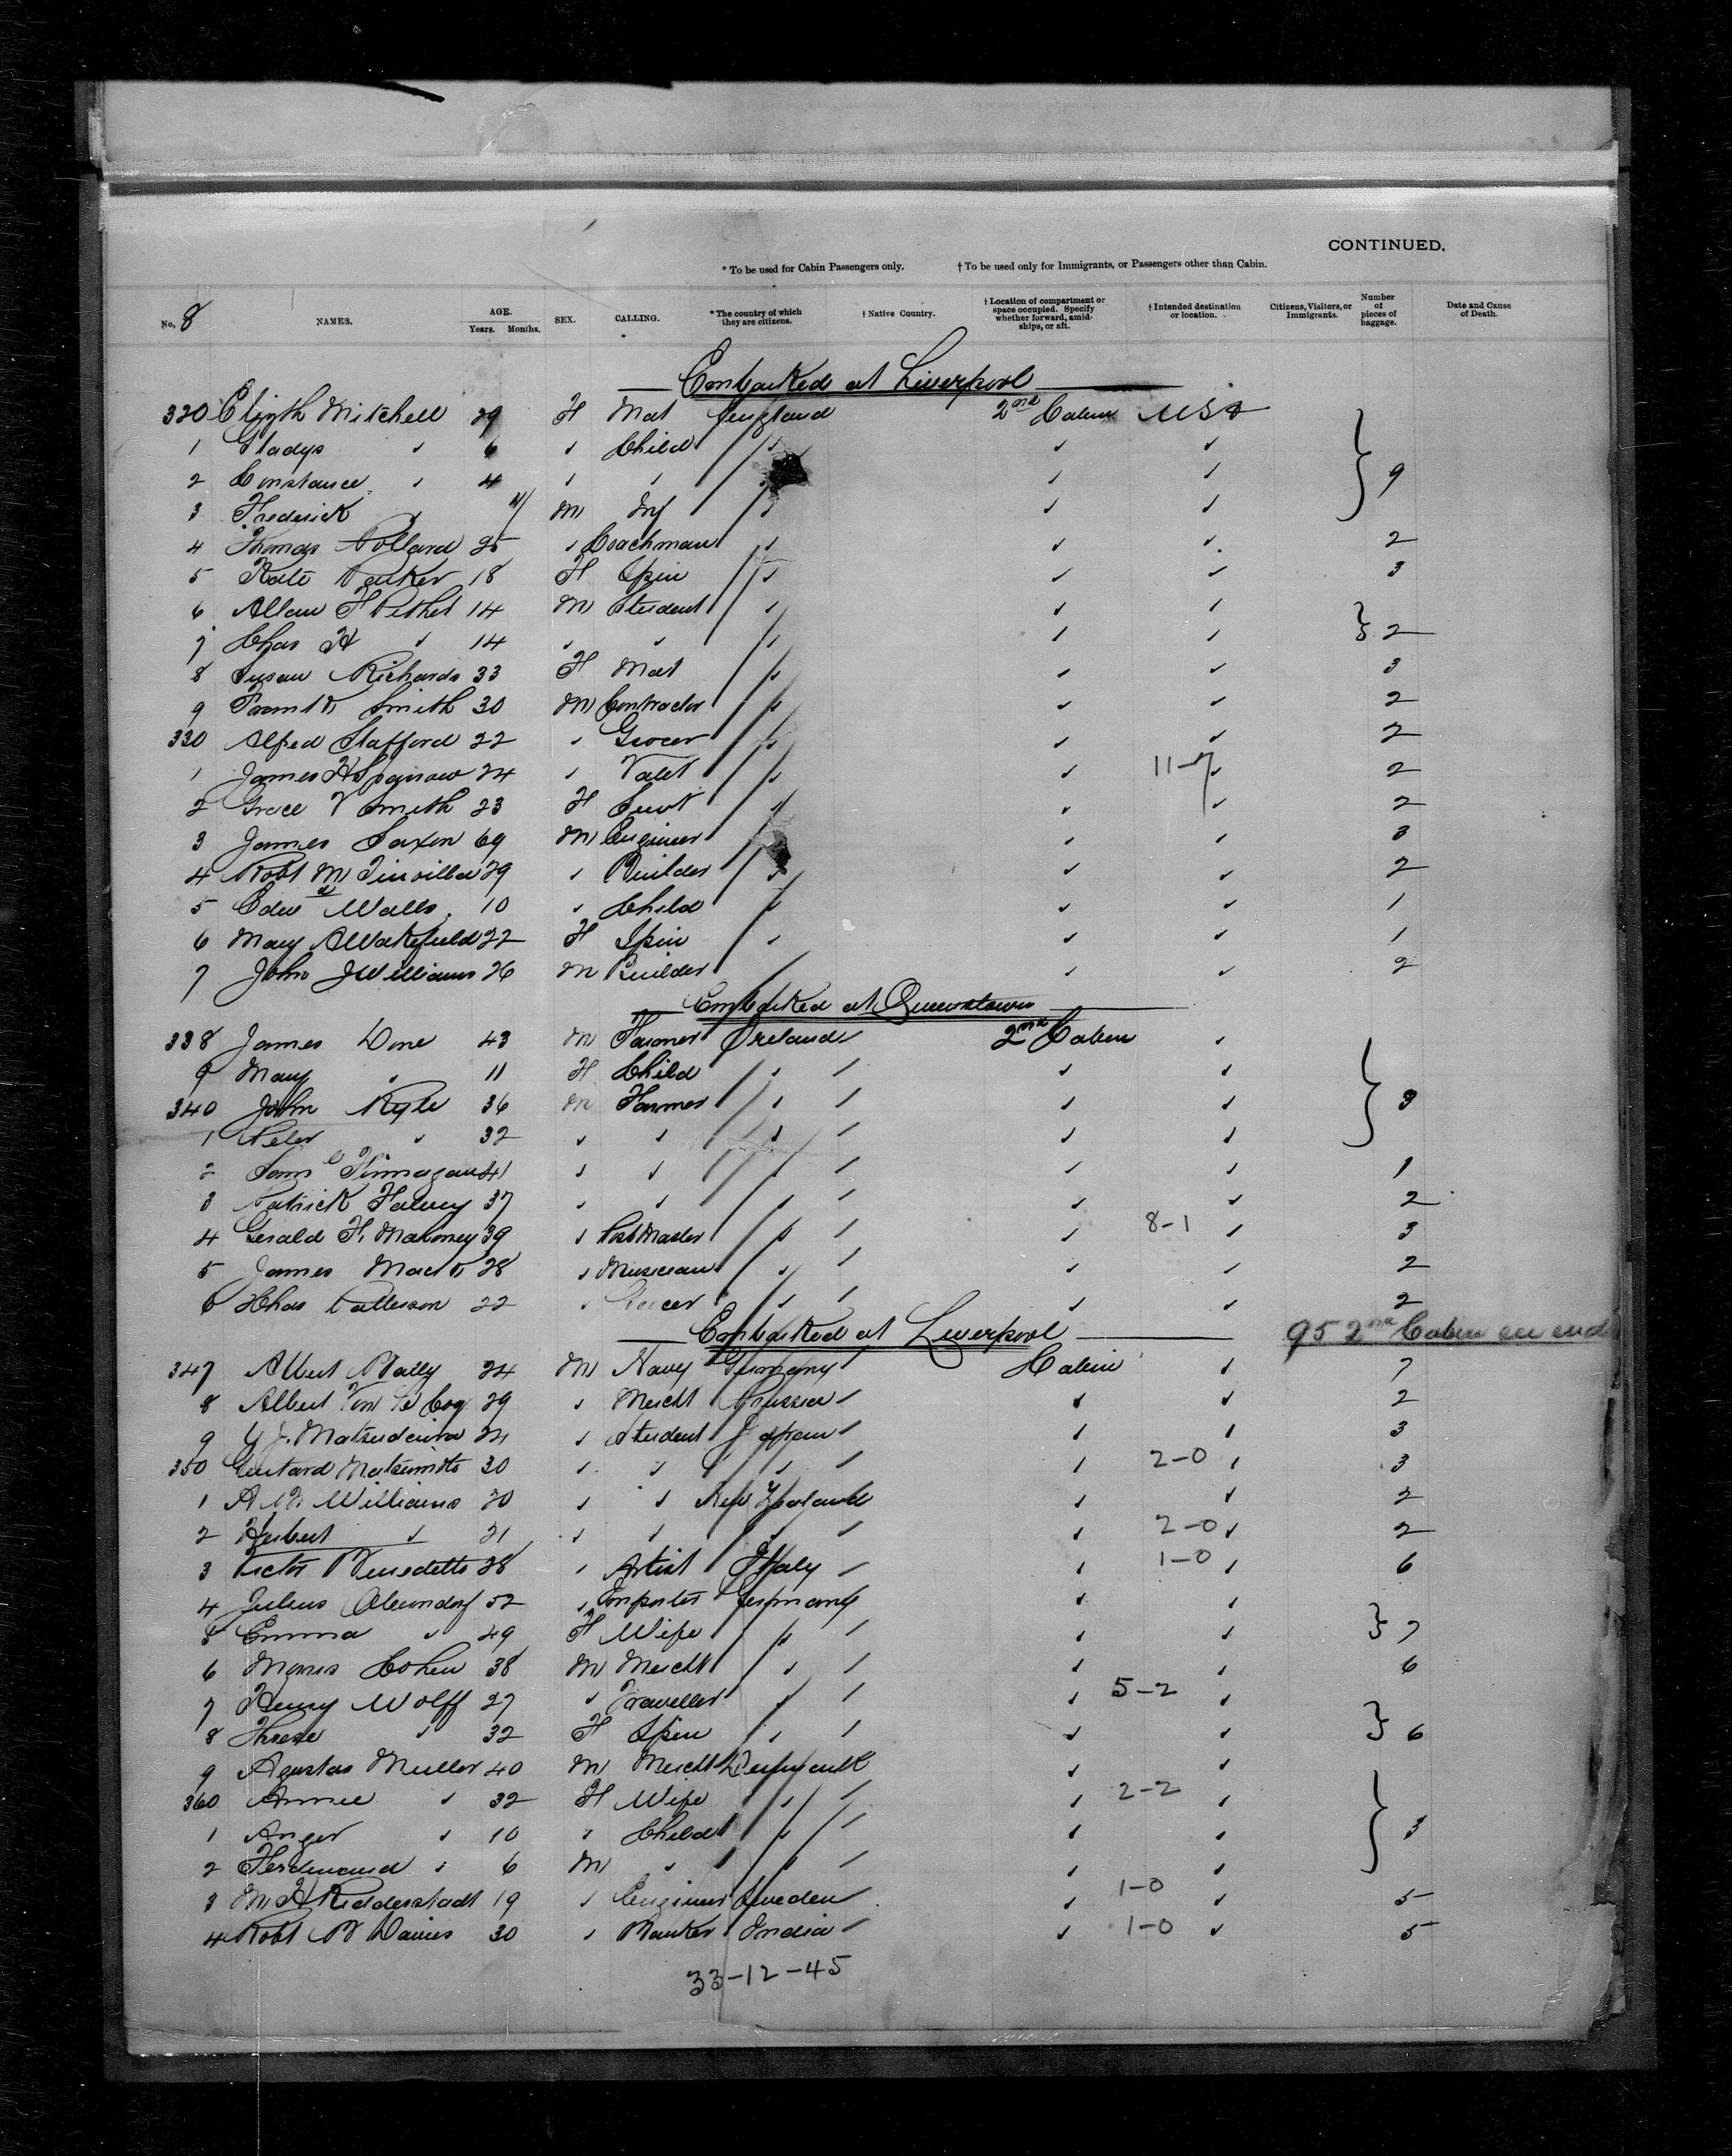 CONTINUED.
* To be used for Cabin Passengers only. † To be used only for Immigrants, or Passengers other than Cabin.
No. 8 NAMES. AGE. Years. Months. SEX. CALLING. * The country of which they are citizens. † Native Country. † Location of compartment or space occupied. Specify whether forward, amidships, or aft. † Intended destination or location. Citizens, Visitors, or Immigrants. Number of pieces of baggage. Date and Cause of Death.
Embarked at Liverpool
320 Elizth Mitchell 29 F Mat England 2nd Cabin USA
1 Gladys " 6 " Child " " "
2 Constance " 4 " " " " " 9
3 Frederick " 11/ M Inf " " "
4 Thomas Pollard 25 " Coachman " " " 2
5 Kate Parker 18 F Spin " " " 3
6 Allan F Pethel 14 M Student " " "
7 Chas H " 14 " " " " " 2
8 Susan Richards 33 F Mat " " " 3
9 Smith 30 M Contractor " " " 2
330 Alfred Stafford 22 " Grocer " " " 2
1 James H 24 " Valet " " 11-7 " 2
2 Grace V Smith 23 F Servt " " " 2
3 James Saxon 69 M Engineer " " " 3
4 Robt M 29 " Builder " " " 2
5 Edwd Walls 10 " Child " " " 1
6 Mary A Wakefield 22 F Spin " " " 1
7 John J Williams 26 M Builder " " 2
Embarked at Queenstown
338 James Done 43 M Farmer Ireland 2nd Cabin "
9 Mary " 11 F Child " " "
340 John Kyle 36 M Farmer " " " 3
1 Peter " 32 " " " " "
2 Saml Finnagan 41 " " " " " 1
3 Patrick Falvey 37 " " " " " 2
4 Gerald F. Mahoney 39 " Post Master " " 8-1 " 3
5 James Mack 28 " Musician " " " 2
6 Chas Patterson 22 " Grocer " " " 2
Embarked at Liverpool 95 2nd Cabin en end
347 Albert 24 M Navy Germany Cabin " 7
8 Albert Von Le Coq 29 " Mercht Prussia " " 2
9 Y J. Matsudaira 24 " Student Japan " " 3
350 Matsumoto 30 " " " " 2-0 " 3
1 A Williams 20 " " New Zealand " " 2
2 Herbert " 21 " " " " 2-0 " 2
3 Victor Benedetto 28 " Artist Italy " 1-0 " 6
4 Julius Oberndorf 52 " Importer Germany " "
5 Emma " 49 F Wife " " " 7
6 Morris Cohen 38 M Mercht " " " 6
7 Henry Wolff 27 " Traveller " " 5-2 "
8 Therese " 32 F Spin " " " 6
9 Agustas Muller 40 M Mercht Denmark " "
360 Annie " 32 F Wife " " 2-2 "
1 Anger " 10 " Child " " " 3
2 Ferdinand " 6 M " " " "
3 M H Ridderstadt 19 " Engineer Sweden " 1-0 " 5
4 Robt B Davies 30 " Banker India " 1-0 " 5
33-12-45